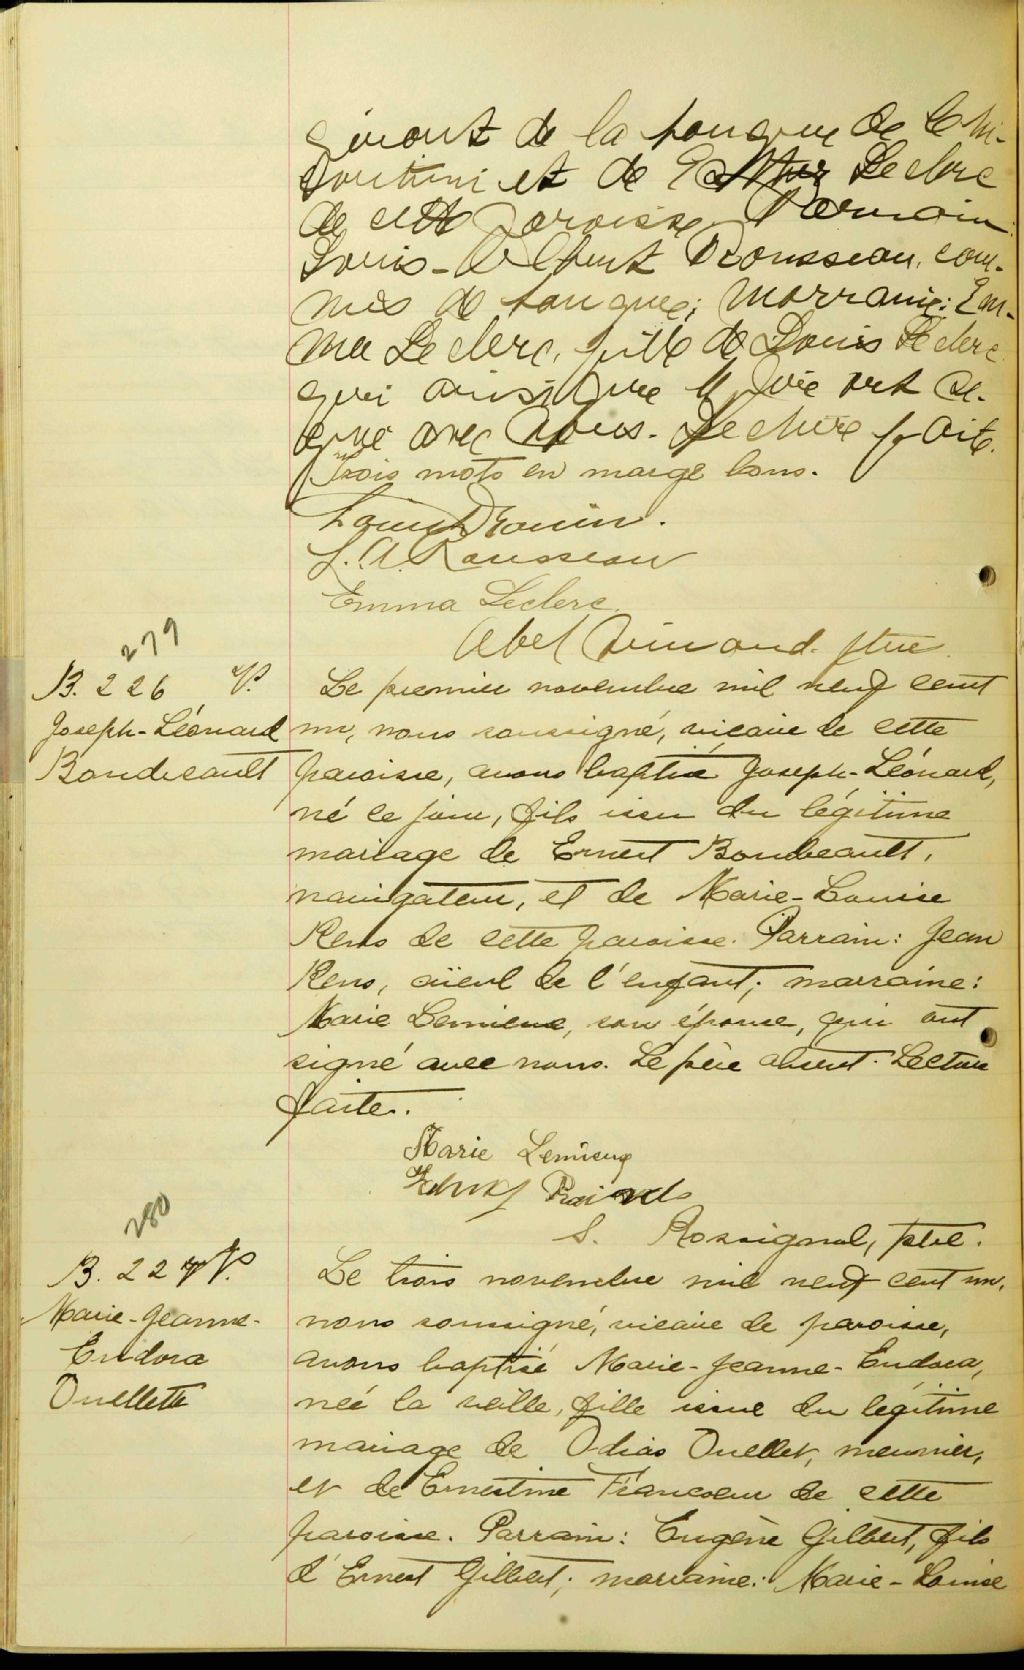 gérant de la banque de Chi-
coutimi et de Leclerc
de cette paroisse. Parrain:
Louis-Albert Rousseau, com-
mis de banque; marraine: Em-
ma Leclerc, fille de Louis Leclerc
qui ainsi que le père ont si-
gné avec nous. Lecture faite.
Trois mots en marge bons.
Louis Drouin.
L. A. Rousseau
Emma Leclerc
Abel ptre
279
B. 226
Joseph-Léonard
Boudreault
Le premier novembre mil neuf cent
un, nous soussigné, vicaire de cette
paroisse, avons baptisé Joseph-Léonard,
né ce jour, fils issu du légitime
mariage de Ernest Boudreault,
navigateur, et de Marie-Louise
de cette paroisse. Parrain: Jean
aïeul de l'enfant; marraine:
Marie Lemieux, son épouse, qui ont
signé avec nous. Le père absent. Lecture
faite.
Marie Lemieux
S. Rossignol, ptre.
280
B. 227
Marie-Jeanne-
Eudora
Ouellette
Le trois novembre mil neuf cent un,
nous soussigné, vicaire de paroisse,
avons baptisé Marie-Jeanne-Eudora,
née la veille, fille issue du légitime
mariage de Odias Ouellet, meunier,
et de Ernestine Francoeur de cette
paroisse. Parrain: Eugène Gilbert, fils
d'Ernest Gilbert; marraine: Marie-Louise